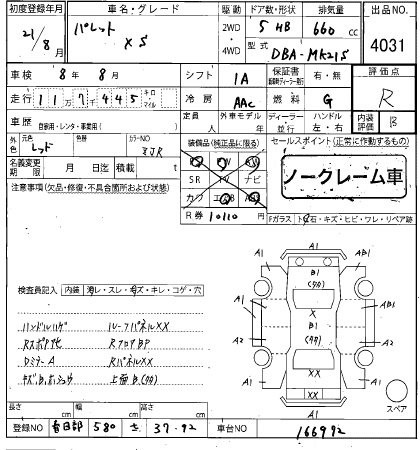 初度登録年月 車名・グレード 駆動 ドア数・形状 排気量 出品NO
21/8月 パレット XS 2WD 4WD 5 HB 660 cc 4031
型式 DBA-MK21S
車検 8年 8月 シフト IA 保証書 有・無 評価点
走行 117445 キロ マイル 冷房 AAC 燃料 G R
車歴 自家用・レンタ・事業用( ) 定員 人 外車モデル 年 ディーラー 並行 ハンドル 左・右 内装評価 B
外色 元色 レッド 色替 カラーNO ZJR 装備品(純正品に限る) セールスポイント(正常に作動するもの)
名義変更期限 月 日迄 積載 t SR TV ナビ
ノークレーム車
注意事項(欠品・修復・不具合箇所および状態) カワ エアB
R券 10110
Fガラス
石・キズ・ヒビ・ワレ・リペア跡
検査員記入 内装
スレ・キズ・キレ・コゲ・穴
ハンドルハゲ ルーフパネルXX
RフロアBP
DミラーA RパネルXX
A1
A1 B1 AB1
X
A1 B1 AB1
A2 A2
XX
A1 XX A1
A1
スペア
長さ cm 幅 cm 高さ cm
登録NO 春日部 580 き 37-92 車台NO 166992